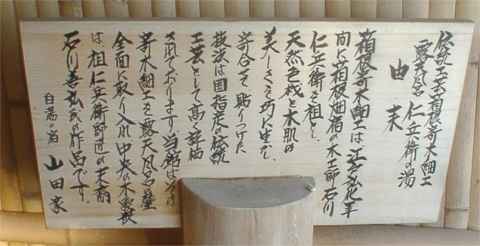 伝統工芸箱根寄木細工
露天風呂 仁兵衛の湯
由来
箱根寄木細工は江戸文化年
間に箱根畑宿の木工師石川
仁兵衛を祖とし
天然色板と木肌の
美しさを巧に生かし
寄合せて貼りつけた
技法は国指定の伝統
工芸として高い評価
されております当館は
寄木細工を露天風呂壁
全面に取り入れ中央の木象嵌
は祖仁兵衛師直の末裔
石川善弘氏の作品です。
白湯の宿 山田家